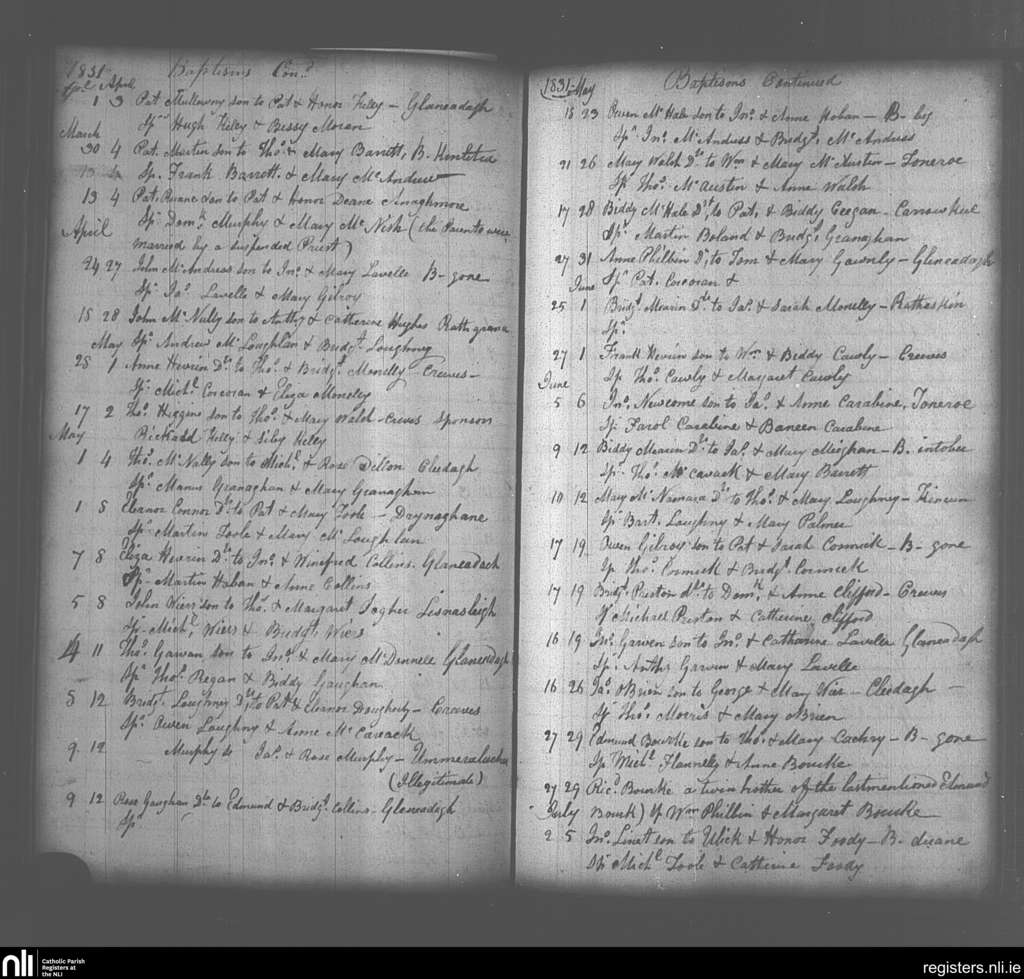 1831 Baptisms Con.d
April
1 3 Pat Mullowny son to Pat & Honor Kiley - Glaneadagh
Sp.r Hugh Kiley & Bessy Moran
March
30 4 Pat. Martin son to Tho.s & Mary Barrett, B.
Sp. Frank Barrott. & Mary McAndrew
13 4 Pat. Ruane son to Pat & Honor Deane
Sp.r Dom.k Murphy & Mary McNish (the Parents were
April
married by a suspended Priest)
24 27 John McAndrew son to Jn.o & Mary Lavelle B-gone
Sp.r Ja.s Lavelle & Mary Gilroy
18 28 John McNully son to Anth.y & Catherine Hughes Rathgrana
May Sp.r Andrew McLoughlan & Budg.t Loughney
28 1 Anne Hevrin D.tr to Tho.s & Bridg.t Monelly Creeves-
Sp.r Mich.l Corcoran & Eliza Moneley
17 2 Tho.s Higgins son to Tho.s & Mary Walsh Sponson
May Rickard Kiley & Siby Kiley
1 4 Tho.s McNally son to Mich.l & Rose Dillon Cleedagh
Sp.r Manus Granaghan & Mary Granaghan
1 8 Eleanor Connor D.tr to Pat & Mary Toole - Drynaghane
Sp.r Martin Toole & Mary McLoughlan
7 8 Eliza Hevrin D.tr to Jn.o & Winefred Collins. Glaneadagh
Sp.r Martin Haban & Anne Collins
5 8 John Wiers son to Tho.s & Margaret Togher Lisnasleigh
Sp.r Mich.l Wiers & Budg.t Wiers
4 11 Tho.s Garvan son to Jn.o & Mary McDonnell Glaneadagh
Sp.r Tho.s Regan & Biddy Gaughan
5 12 Bridg.t Loughney D.tr to Pat & Eleanor Dougherty - Creeves
Sp.r Owen Loughny & Anne McCavack
9 12 Murphy to Ja.s & Rose Murphy - Ummeralucka
(Illegitimate)
9 12 Rose Gaughan D.tr to Edmund & Bridg.t Collins. Gleneadagh
Sp.r
1831 May Baptisons Continued
18 23 Owen McHale son to Jn.o & Anne Hoban - B- by
Sp.r Jn.o McAndrew & Budg.t McAndrew
21 26 Mary Walsh D.r to Wm & Mary McAustin - Toneroe
Sp. Tho.s McAustin & Anne Walsh
17 28 Biddy McHale D.tr to Pat. & Biddy Geegan - Carrowkeel
Sp.r Martin Boland & Budg.t Granaghan
27 31 Anne Philbin D.r to Tom & Mary Gawnly - Gleneadagh
June Sp.r Pat. Corcoran &
25 1 Bridg.t Mearin D.tr to Ja.s & Sarah Monelly - Rathaskin
Sp.r
27 1 Frank Hevrin son to Wm & Biddy Cawly - Creeves
June Sp Tho.s Cawly & Margaret Cawly
5 6 Jn.o Newcome son to Ja.s & Anne Carabine, Toneroe
Sp. Farol Carabine & Baneen Carabine
9 12 Biddy Mearin D.tr to Ja.s & Mary Meighan - B. intober
Sp.r Tho.s McCavack & Mary Barrett
10 12 Mary McNamara D.r to Tho.s & Mary Loughney - Kincun
Sp.r Bart. Loughny & Mary Palmer
17 19 Owen Gilroy son to Pat & Sarah Cormick - B- gone
Sp. Tho.s Cormick & Budg.t Cormick
17 19 Bridg.t Ruston D.tr to Dom.k & Anne Clifford - Creeves
Sp Michael Ruston & Catherine Clifford
16 19 Jn.o Garven son to Jn.o & Catharine Lavelle Glaneadagh
Sp.r Anth.y Garven & Mary Lavelle
16 26 Ja.s OBrien son to George & Mary Wier - Cleedagh -
Sp. Tho.s Morris & Mary OBrien
27 29 Edmund Bourke son to Tho.s & Mary Cachry - B- gone
Sp Mich.l Flannelly & Anne Bourke
27 29 Ric.d Bourke a twin brother of the lastmentioned Edmund
July Bourk) Sp Wm Philbin & Margaret Bourke
2 5 Jn.o Linet son to Ulick & Honor Foody - B- duane
Sp.r Mich.l Toole & Catherine Foody
nli
Catholic Parish
Registers at
the NLI
registers.nli.ie